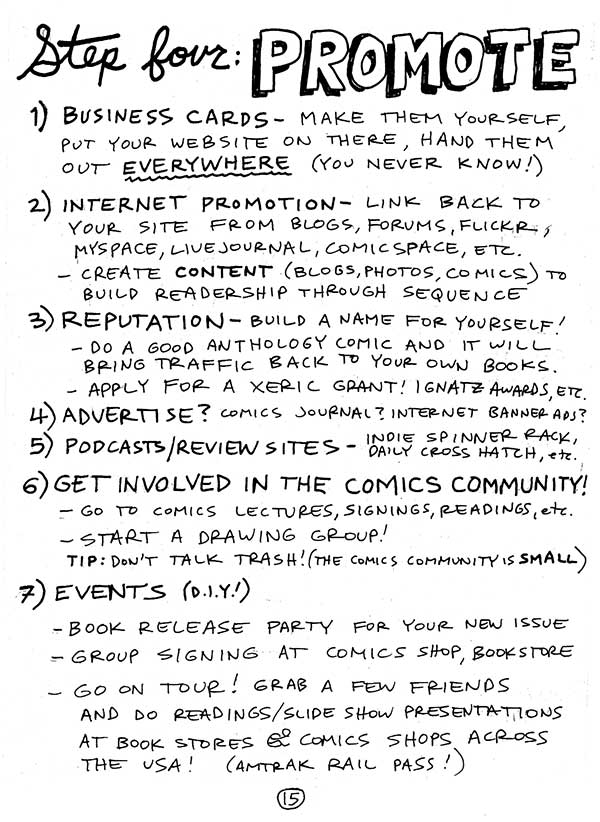 Step four: PROMOTE
1) BUSINESS CARDS - MAKE THEM YOURSELF,
PUT YOUR WEBSITE ON THERE, HAND THEM
OUT EVERYWHERE (YOU NEVER KNOW!)
2) INTERNET PROMOTION - LINK BACK TO
YOUR SITE FROM BLOGS, FORUMS, FLICKR,
MYSPACE, LIVEJOURNAL, COMICSPACE, ETC.
- CREATE CONTENT (BLOGS, PHOTOS, COMICS) TO
BUILD READERSHIP THROUGH SEQUENCE
3) REPUTATION - BUILD A NAME FOR YOURSELF!
- DO A GOOD ANTHOLOGY COMIC AND IT WILL
BRING TRAFFIC BACK TO YOUR OWN BOOKS.
- APPLY FOR A XERIC GRANT! IGNATZ AWARDS, ETC.
4) ADVERTISE? COMICS JOURNAL? INTERNET BANNER ADS?
5) PODCASTS/REVIEW SITES - INDIE SPINNER RACK,
DAILY CROSS HATCH, etc.
6) GET INVOLVED IN THE COMICS COMMUNITY!
- GO TO COMICS LECTURES, SIGNINGS, READINGS, etc.
- START A DRAWING GROUP!
TIP: DON'T TALK TRASH! (THE COMICS COMMUNITY IS SMALL)
7) EVENTS (D.I.Y.!)
- BOOK RELEASE PARTY FOR YOUR NEW ISSUE
- GROUP SIGNING AT COMICS SHOP, BOOKSTORE
- GO ON TOUR! GRAB A FEW FRIENDS
AND DO READINGS/SLIDE SHOW PRESENTATIONS
AT BOOK STORES & COMICS SHOPS ACROSS
THE USA! (AMTRAK RAIL PASS!)
15